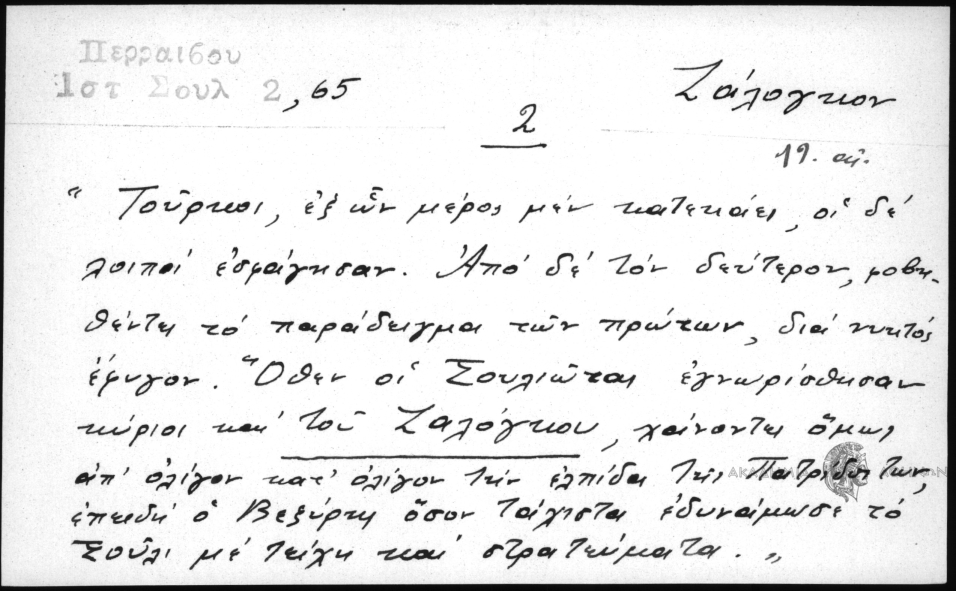 Περραιβου
Ιστ Σουλ 2, 65
Ζάλογκον
2
19. αἰ.
" Τοῦρκοι, ἐξ ὧν μέρος μέν κατεκάει, οἱ δέ
λοιποί ἐσφάγησαν. Ἀπό δέ τόν δεύτερον, φοβη-
θέντες τό παράδειγμα τῶν πρώτων, διά νυκτός
ἔφυγον. Ὅθεν οἱ Σουλιῶται ἐγνωρίσθησαν
κύριοι καί τοῦ Ζαλόγκου, χάνοντες ὅμως
ἀπ' ὀλίγον κατ' ὀλίγον τήν ἐλπίδα τῆς Πατρίδος των,
ἐπειδή ὁ Βεζύρης ὅσον τάχιστα ἐδυνάμωσε τό
Σοῦλι μέ τείχη καί στρατεύματα. "